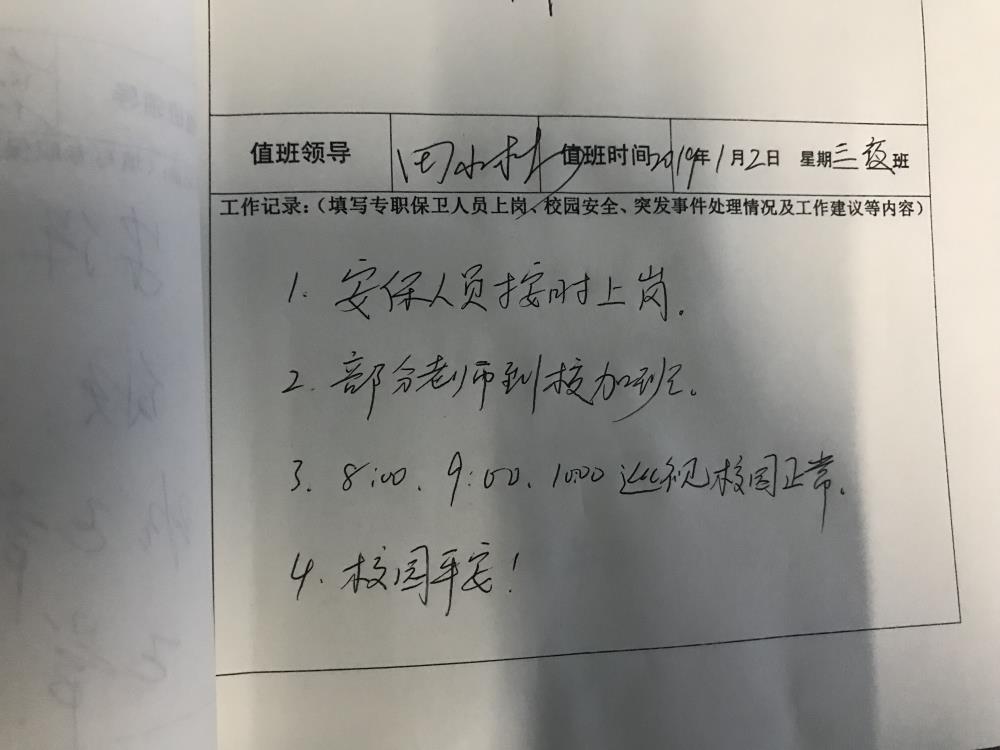 值班领导 田小林 值班时间 2019年1月2日 星期三夜班
工作记录:(填写专职保卫人员上岗、校园安全、突发事件处理情况及工作建议等内容)
1. 安保人员按时上岗.
2. 部分老师到校加班.
3. 8:00、9:00、10:00 巡视校园正常.
4. 校园平安!